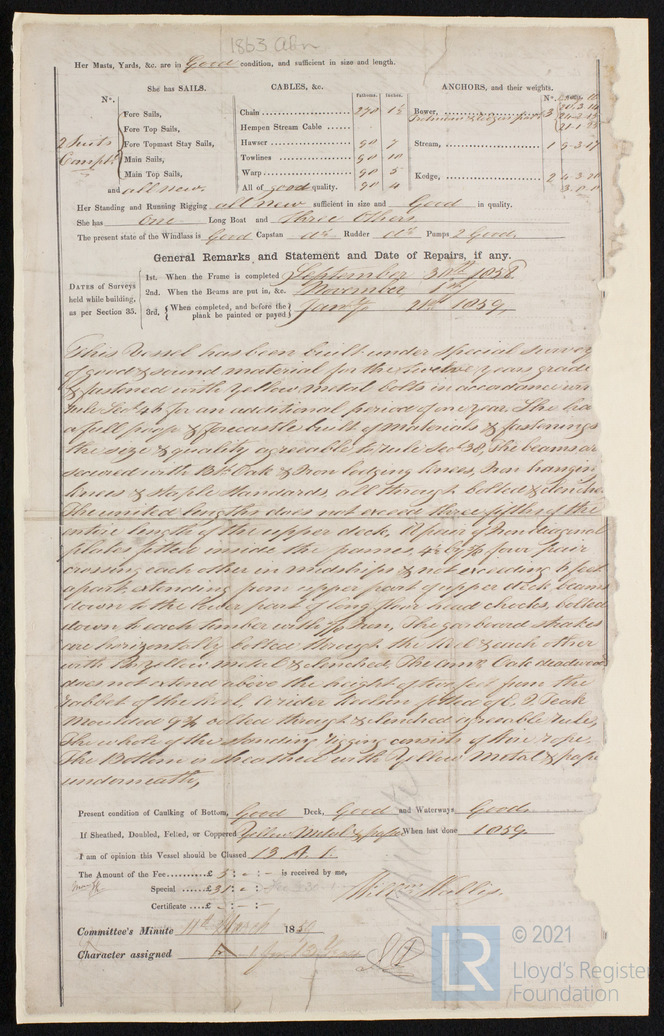 1863
Her Masts, Yards, &c. are in Good condition, and sufficient in size and length.
She has SAILS.
CABLES, &c.
ANCHORS, and their weights.
Nº.
Fathoms.
Inches.
Nº.
Fore Sails,
Chain
270
Bower,
3
Fore Top Sails,
Hempen Stream Cable
2 Suits
Fore Topmast Stay Sails,
Hawser
90
7
Stream,
1
9-3-17
Compt
Main Sails,
Towlines
90
10
Main Top Sails,
Warp
90
5
Kedge,
2
4-3-20
3-0-0
and all new.
All of good quality.
90
4
Her Standing and Running Rigging all new sufficient in size and Good in quality.
She has One Long Boat and three others
The present state of the Windlass is Good Capstan do Rudder do Pumps 2 Good.
General Remarks, and Statement and Date of Repairs, if any.
DATES of Surveys held while building, as per Section 35.
1st. When the Frame is completed September 30th 1858
2nd. When the Beams are put in, &c. November
3rd. {When completed, and before the plank be painted or payed} Jany 21st 1859,
This Vessel has been built under special survey
of good & sound material for the twelve years grade
& fastened with Yellow Metal bolts in accordance
rule Sec 46 for an additional period of one year. She ha
a full poop & forecastle built of materials & fastenings
the size & quality agreeable to rule Sec 38, The beams ar
secured with Oak & Iron lodging knees, Iron hangin
knees & staple standards, all through bolted & clenche
The united lengths does not exceed three fifths of the
entire length of the upper deck, A pair of Iron diagonal
plates fitted inside the frames, four pair
crossing each other in midships & not exceeding 6 feet
apart, extending from upper part of upper deck beams
down to the lower part of long floor head chocks, bolted
down to each timber with Iron, The garboard strakes
are horizontally bolted through the keel & each other
with yellow metal & clenched, The Amn Oak deadwood
does not extend above the height of two feet from the
rabbet of the keel, A rider keelson fitted of E. I Teak
moulded bolted through & clenched agreeable rule,
The whole of the standing rigging consists of wire rope,
The Bottom is sheathed with Yellow Metal & pape
underneath,
Present condition of Caulking of Bottom, Good Deck, Good and Waterways Good
If Sheathed, Doubled, Felted, or Coppered Yellow Metal & paper When last done 1859
I am of opinion this Vessel should be Classed 13 A. 1.
The Amount of the Fee £ 5 : - : - is received by me,
Special £
Certificate £
Willm Wallis.
Committee's Minute 11th March 1859
Character assigned A 1 for 13 Years
LR
© 2021
Lloyd's Register
Foundation